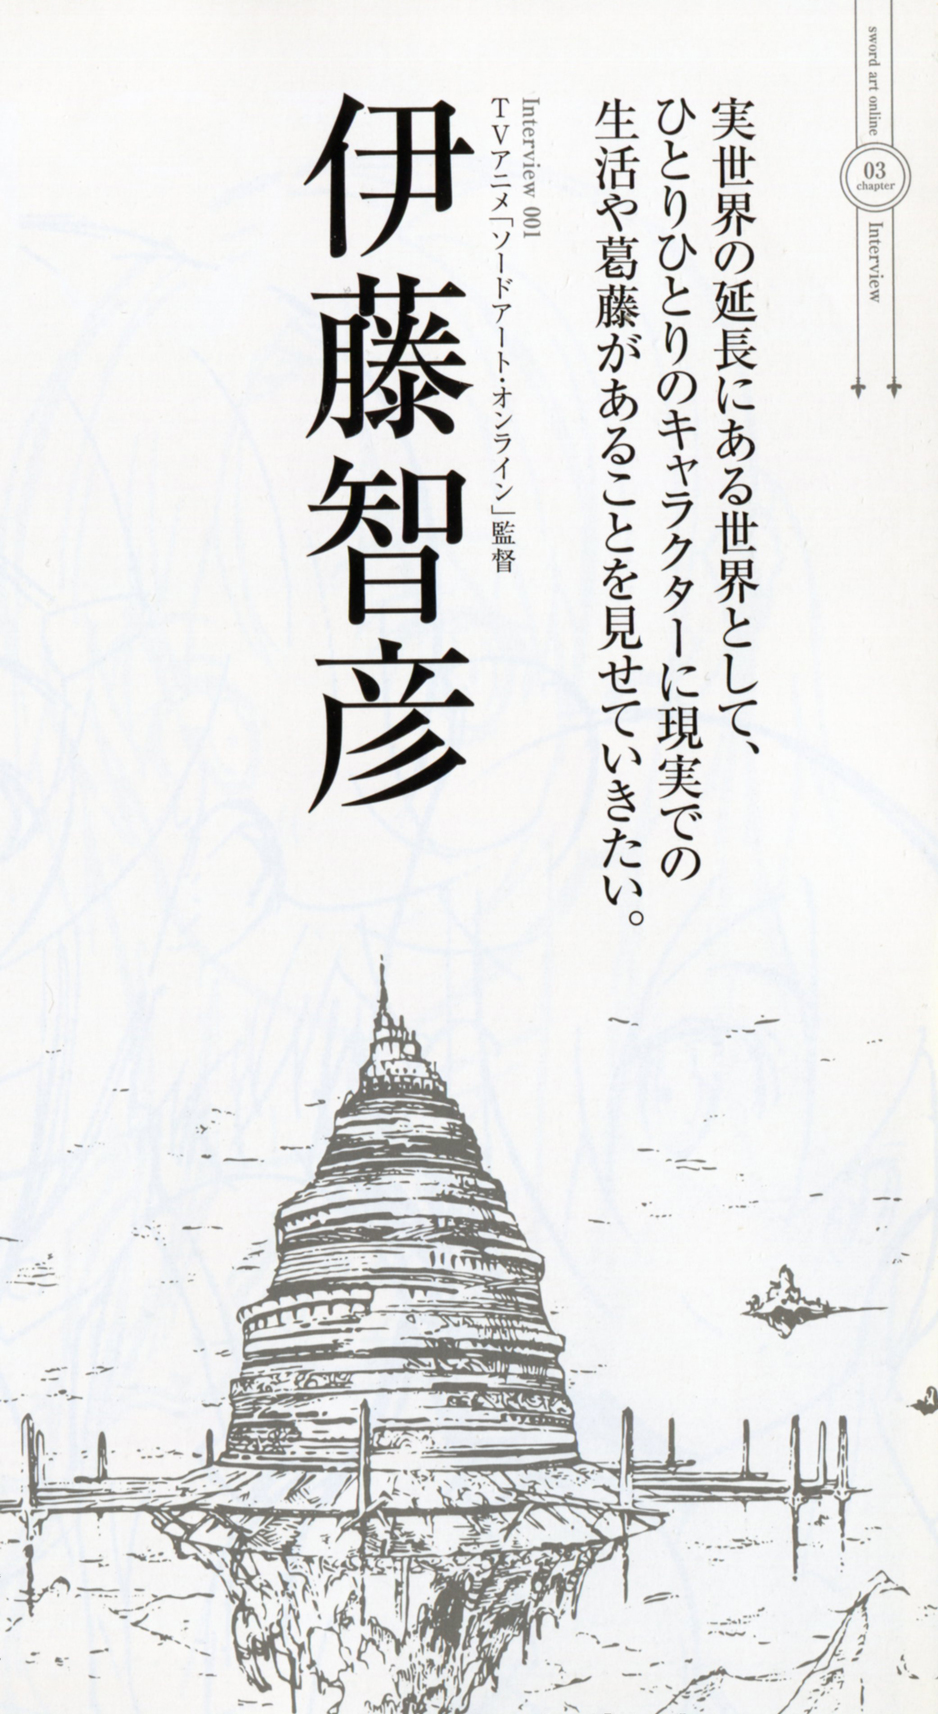 sword art online
03
chapter
Interview
実世界の延長にある世界として、
ひとりひとりのキャラクターに現実での
生活や葛藤があることを見せていきたい。
Interview 001
TVアニメ「ソードアート・オンライン」監督
伊藤智彦